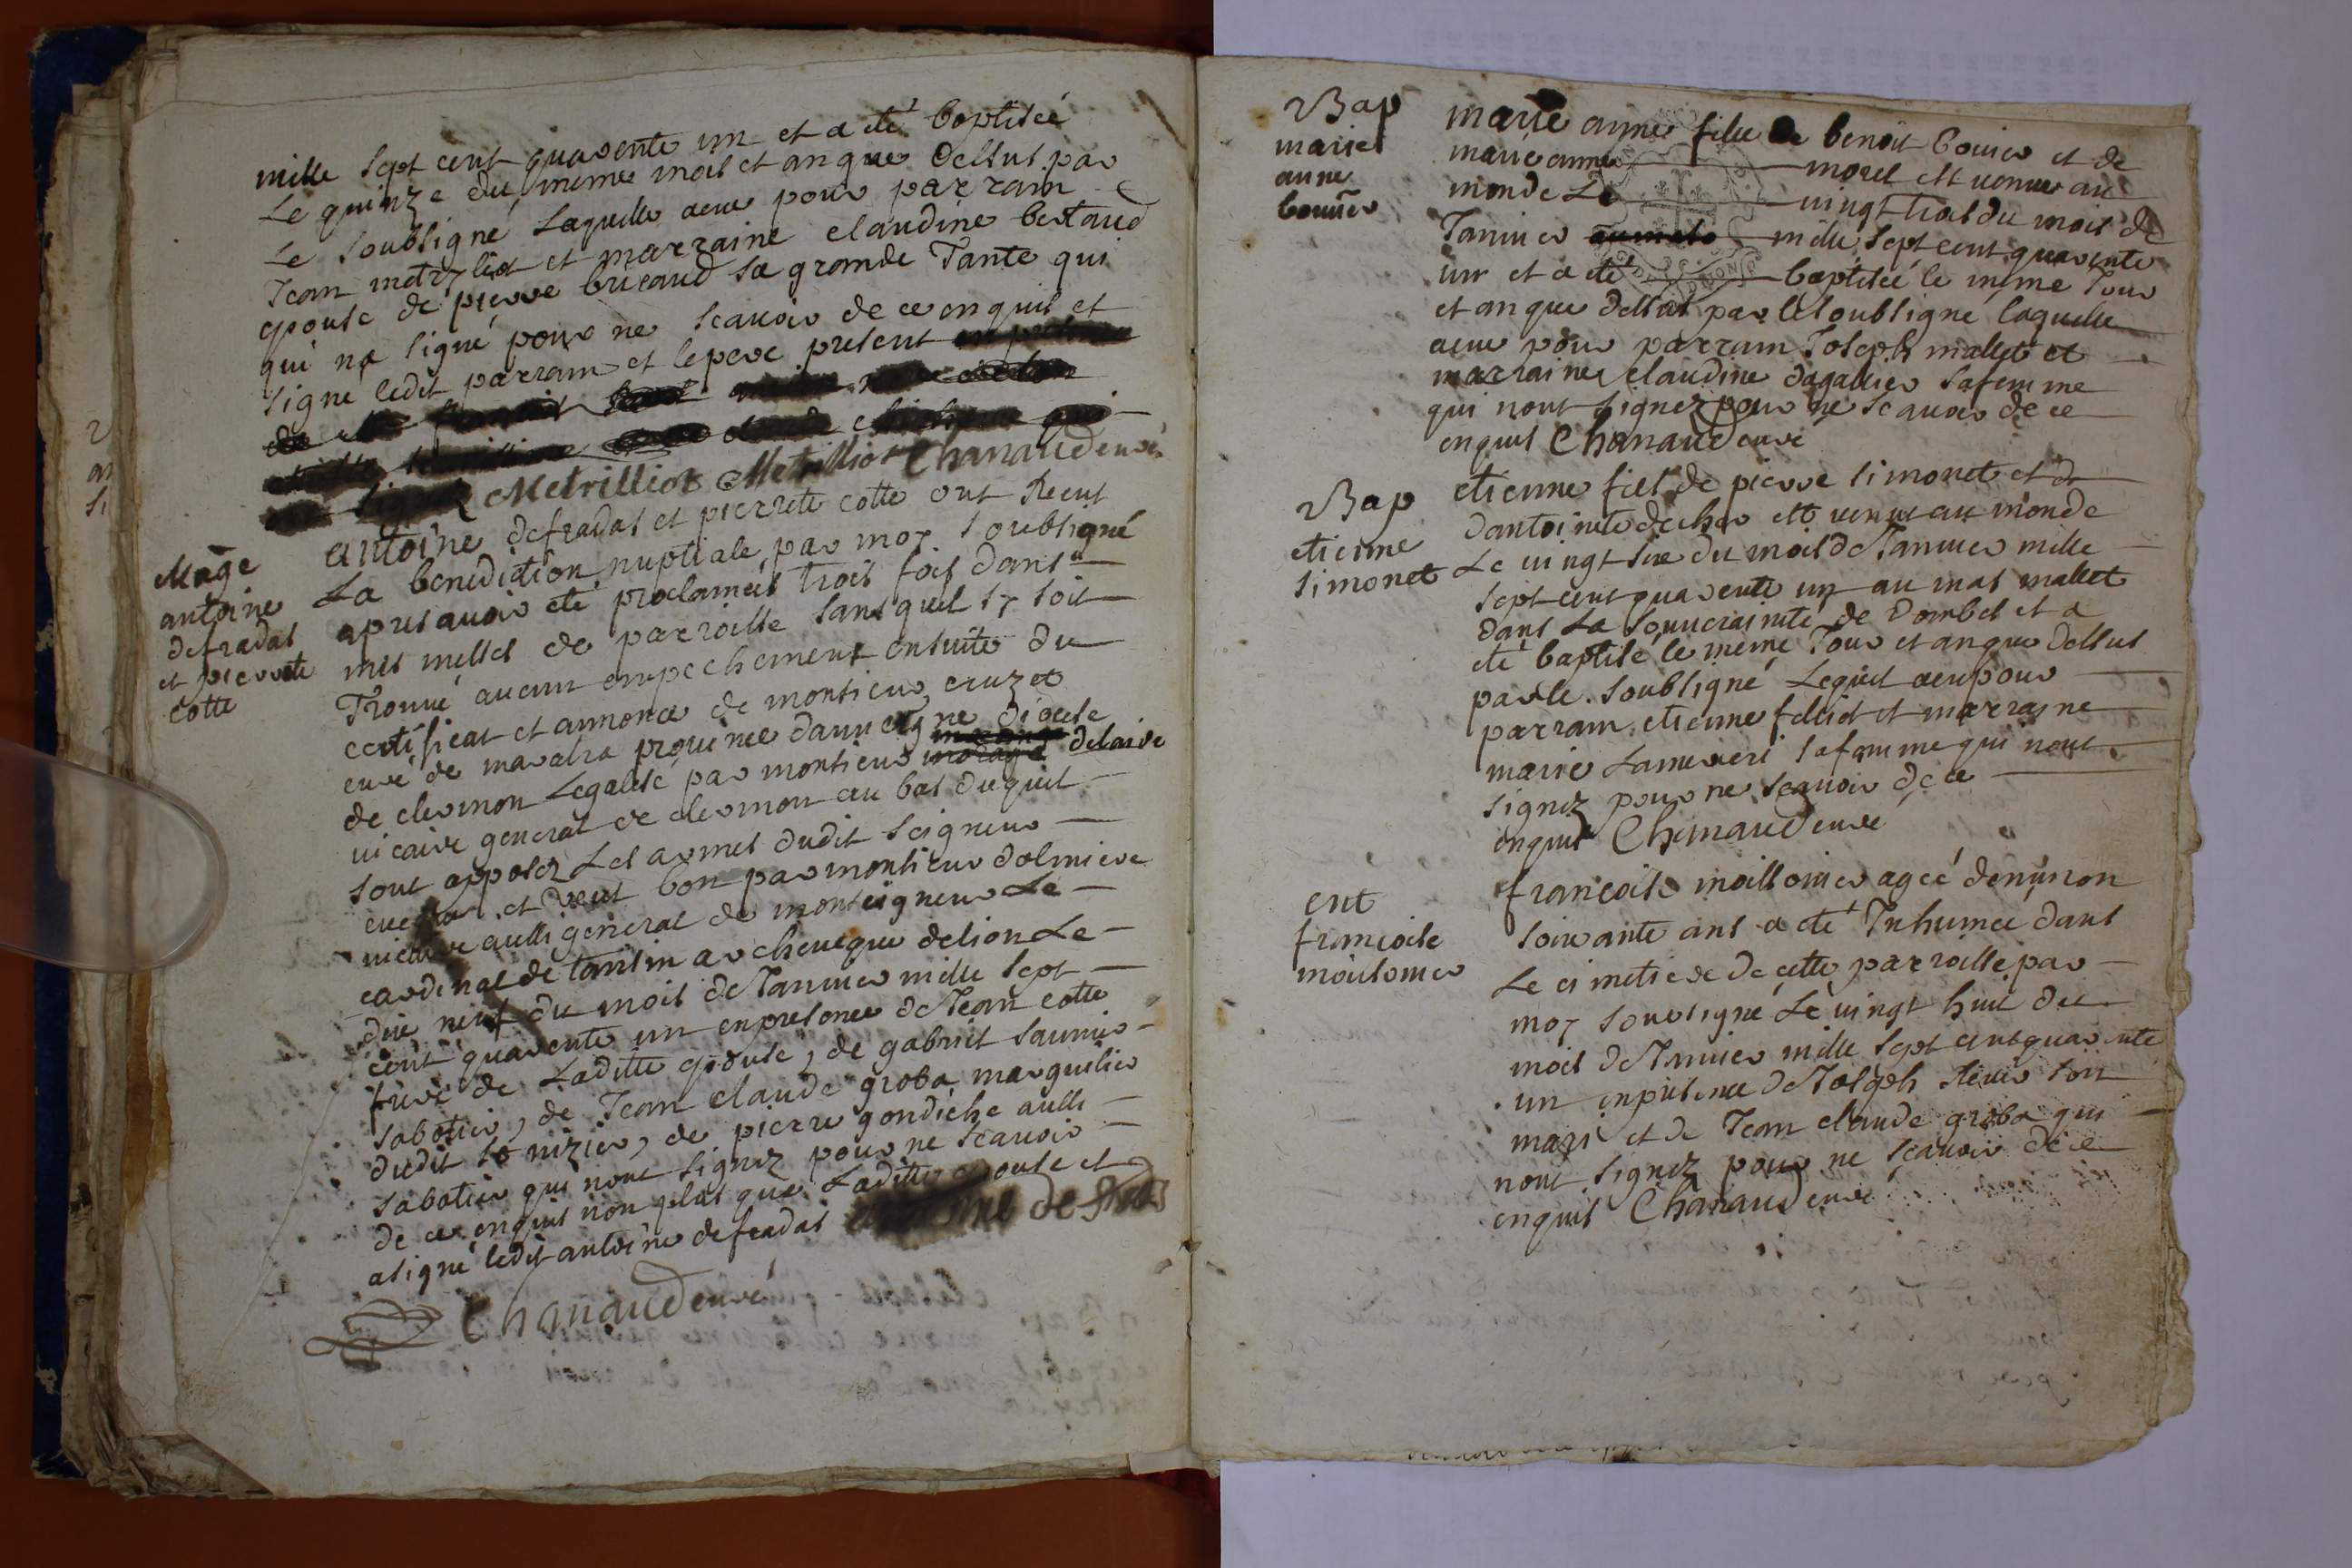 mille sept cent quarente un et a eté baptisée
Le quinze du même mois et an que dessus par
Le soubsigné Laquelle a eue pour parrain
Jean metrillot et marraine claudine bertaud
epouse de pierre bricaud sa grande Tante qui
qui na signé pour ne scauoir de ce enquis et
signé ledit parrain et le pere present
Metrilliot Metrilliot Chanaud curé
Mage
antoine
defradas
et pierrete
cotte
antoine defradas et pierrete cotte ont Receut
La benediction nuptiale par moy soubsigné
apres auoir eté proclameés trois fois dans
mes messes de parroisse sans quil sy soit
Trouué aucun empechement ensuite du
certificat et annonce de monsieur cruzet
curé de maralra prouince dauuergne diocese
de clermon Legalisé par monsieur delaire
uicaire general de clermon au bas duquel
sont apposez Les armes dudit seigneur
et ueut bon par monsieur dolmiere
aussi general de monseigneur Le
cardinal de tansin archeueque de lion Le
dix neuf du mois de Januier mille sept
cent quarente un en presence de Jean cotte
frere de Laditte epouse, de gabriel saunier
sabotier, de Jean claude groba marguilier
dudit st nizier, de pierre gondiche aussi
sabotier qui nont signez pour ne scauoir
de ce enquis non plus que Laditte epouse et
a signé ledit antoine defradas
Chanaud curé
Bap
marie
anne
bouuier
marie anne fille de benoit bouier et de
marie anne morel est uenue au
monde Le uingt trois du mois de
Januier mille sept cent quarente
un et a eté baptisée le même Jour
et an que dessus par le soubsigné laquelle
a eue pour parrain Joseph mallet et
marraine claudine dagallier sa femme
qui nont signez pour ne scauoir de ce
enquis Chanaud curé
Bap
etienne
simonet
etienne fils de pierre simonet et de
dantoinete decher est uenu au monde
Le uingt six du mois de Januier mille
sept cent quarente un au mas mallet
dans La souueraineté de Dombes et a
eté baptisé le même Jour et an que dessus
par le soubsigné Lequel a eu pour
parrain etienne felliet et marraine
marie Lameueri sa femme qui nont
signez pour ne scauoir de ce
enquis Chanaud curé
ent
francoise
moissonier
francoise moissonier ageé denuiron
soixante ans a eté Inhumeé dans
Le cimetiere de cette parroisse par
moy soubsigné Le uingt huit du
mois de Januier mille sept cent quarente
un en presence de Joseph Reuir son
mari et de Jean claude groba qui
nont signez pour ne scauoir de ce
enquis Chanaud curé